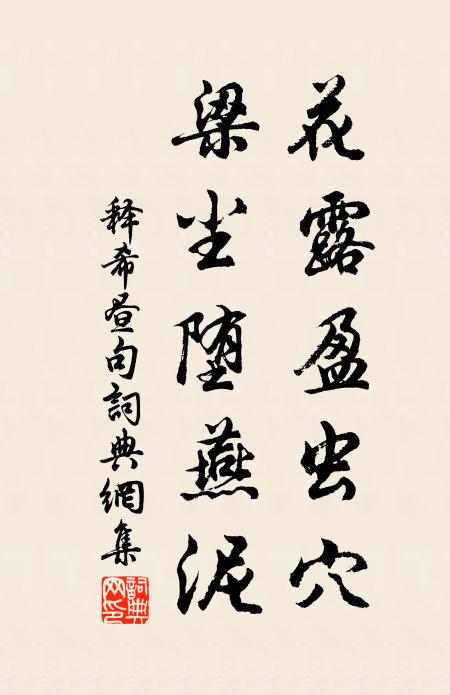 花露盈虫穴
梁尘堕燕泥
释希昼句詞典網集
詞典网印